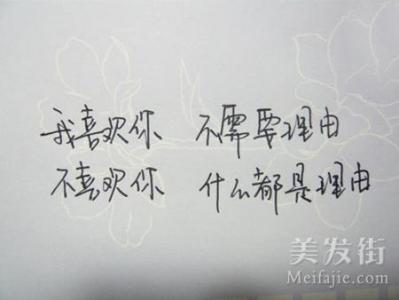 我喜欢你 不需要理由
不喜欢你 什么都是理由
美发街
Meifajie.com